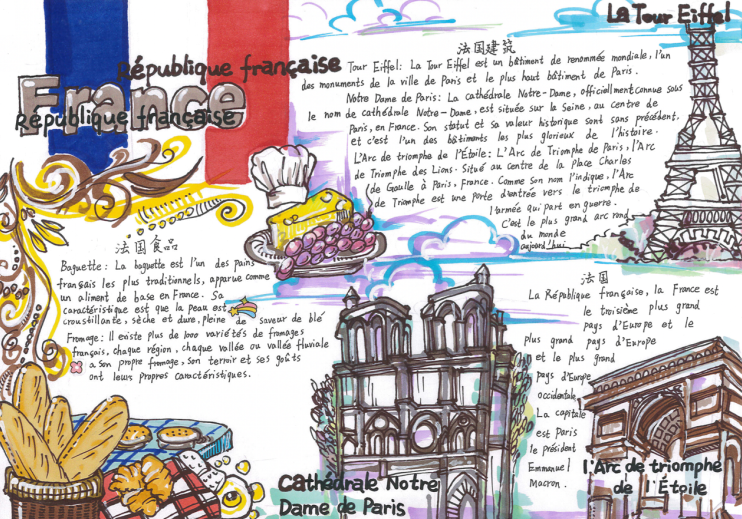 La Tour Eiffel
République française
France
République française
法国建筑
Tour Eiffel: La Tour Eiffel est un bâtiment de renommée mondiale, l'un
des monuments de la ville de Paris et le plus haut bâtiment de Paris.
Notre Dame de Paris: La cathédrale Notre-Dame, officiellment connue sous
le nom de cathédrale Notre-Dame, est située sur la Seine, au centre de
Paris, en France. Son statut et sa valeur historique sont sans précédent.
et c'est l'un des bâtiments les plus glorieux de l'histoire.
L'Arc de triomphe de l'Étoile: L'Arc de Triomphe de Paris, l'Arc
de Triomphe des Lions. Situé au centre de la Place Charles
de Gaulle à Paris, France. Comme son nom l'indique, l'Arc
de Triomphe est une porte d'entrée vers le triomphe de
l'armée qui part en guerre.
C'est le plus grand arc rond
du monde
aujourd'hui
法国食品
Baguette: La baguette est l'un des pains
français les plus traditionnels, apparue comme
un aliment de base en France. Sa
caractéristique est que la peau est
croustillante, sèche et dure, pleine de saveur de blé
Fromage: Il existe plus de 1000 variétés de fromages
français, chaque région, chaque vallée ou vallée fluviale
a son propre fromage, son terroir et ses goûts
ont leurs propres caractéristiques.
法国
La République française, la France est
le troisième plus grand
pays d'Europe et le
plus grand pays d'Europe
et le plus grand
pays d'Europe
occidentale
La capitale
est Paris
le président
Emmanuel
Macron.
Cathédrale Notre
Dame de Paris
l'Arc de triomphe
de l'Étoile